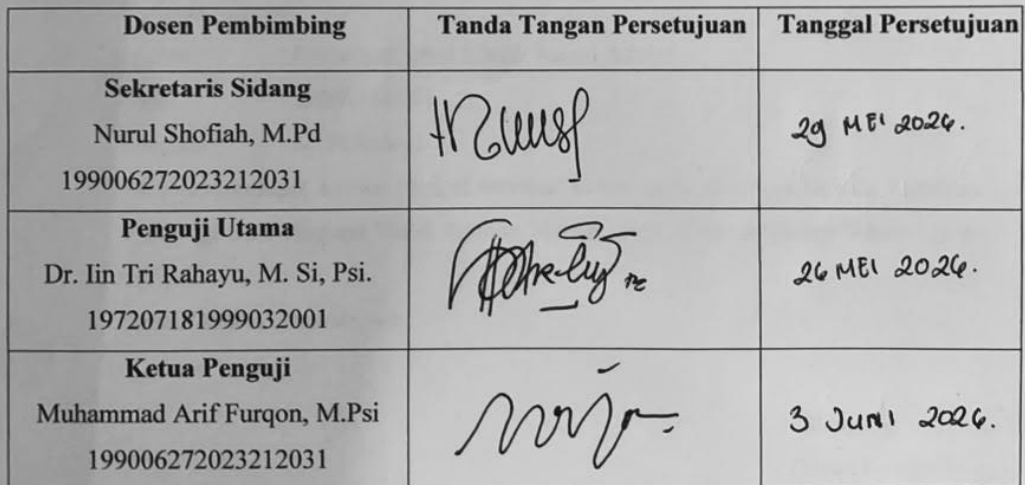 Dosen Pembimbing Tanda Tangan Persetujuan Tanggal Persetujuan
Sekretaris Sidang
Nurul Shofiah, M.Pd
199006272023212031
29 MEI 2026.
Penguji Utama
Dr. Iin Tri Rahayu, M. Si, Psi.
197207181999032001
26 MEI 2026.
Ketua Penguji
Muhammad Arif Furqon, M.Psi
199006272023212031
3 JUNI 2026.